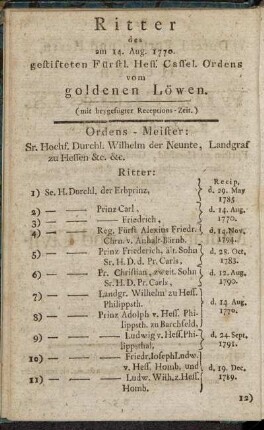 Ritter
des
am 14. Aug. 1770.
gestifteten Fürstl. Hess. Cassel. Ordens
vom
goldenen Löwen.
(mit beygefügter Receptions-Zeit.)
Ordens-Meister:
Sr. Hochf. Durchl. Wilhelm der Neunte, Landgraf
zu Hessen &c. &c.
Ritter:
Recip.
1) Se. H. Durchl. der Erbprinz, d. 29. May
1785
2) — — Prinz Carl, d. 14. Aug.
3) — — Friedrich, 1770.
4) — — Reg. Fürst Alexius Friedr. d. 14. Nov.
Chrn. v. Anhalt-Bärnb. 1794.
5) — — Prinz Friederich, ält. Sohn d. 28. Oct.
Sr. H. D. d. Pr. Carls, 1783.
6) — — Pr. Christian, zweit. Sohn d. 12. Aug.
Sr. H. D. Pr. Carls, 1790.
7) — — Landgr. Wilhelm zu Hess.
Philippsth. d. 14. Aug.
8) — — Prinz Adolph v. Hess. Phi- 1770.
lippsth. zu Barchfeld,
9) — — Ludwig v. Hess. Phi- d. 24. Sept.
lippsthal, 1791.
10) — — Friedr. Joseph Ludw.
v. Hess. Homb. und d. 19. Dec.
11) — — Ludw. Wilh. z. Hess.
Homb.
12)